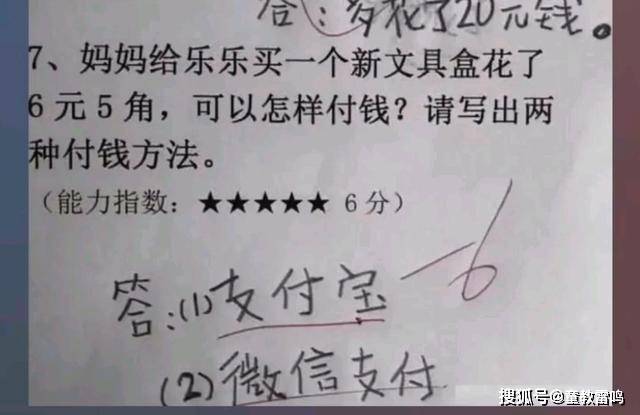 答：多花了20元钱。
7、妈妈给乐乐买一个新文具盒花了
6元5角，可以怎样付钱？请写出两
种付钱方法。
（能力指数：★★★★★ 6分）
-6
答：(1)支付宝
(2)微信支付
搜狐号@童教雷鸣